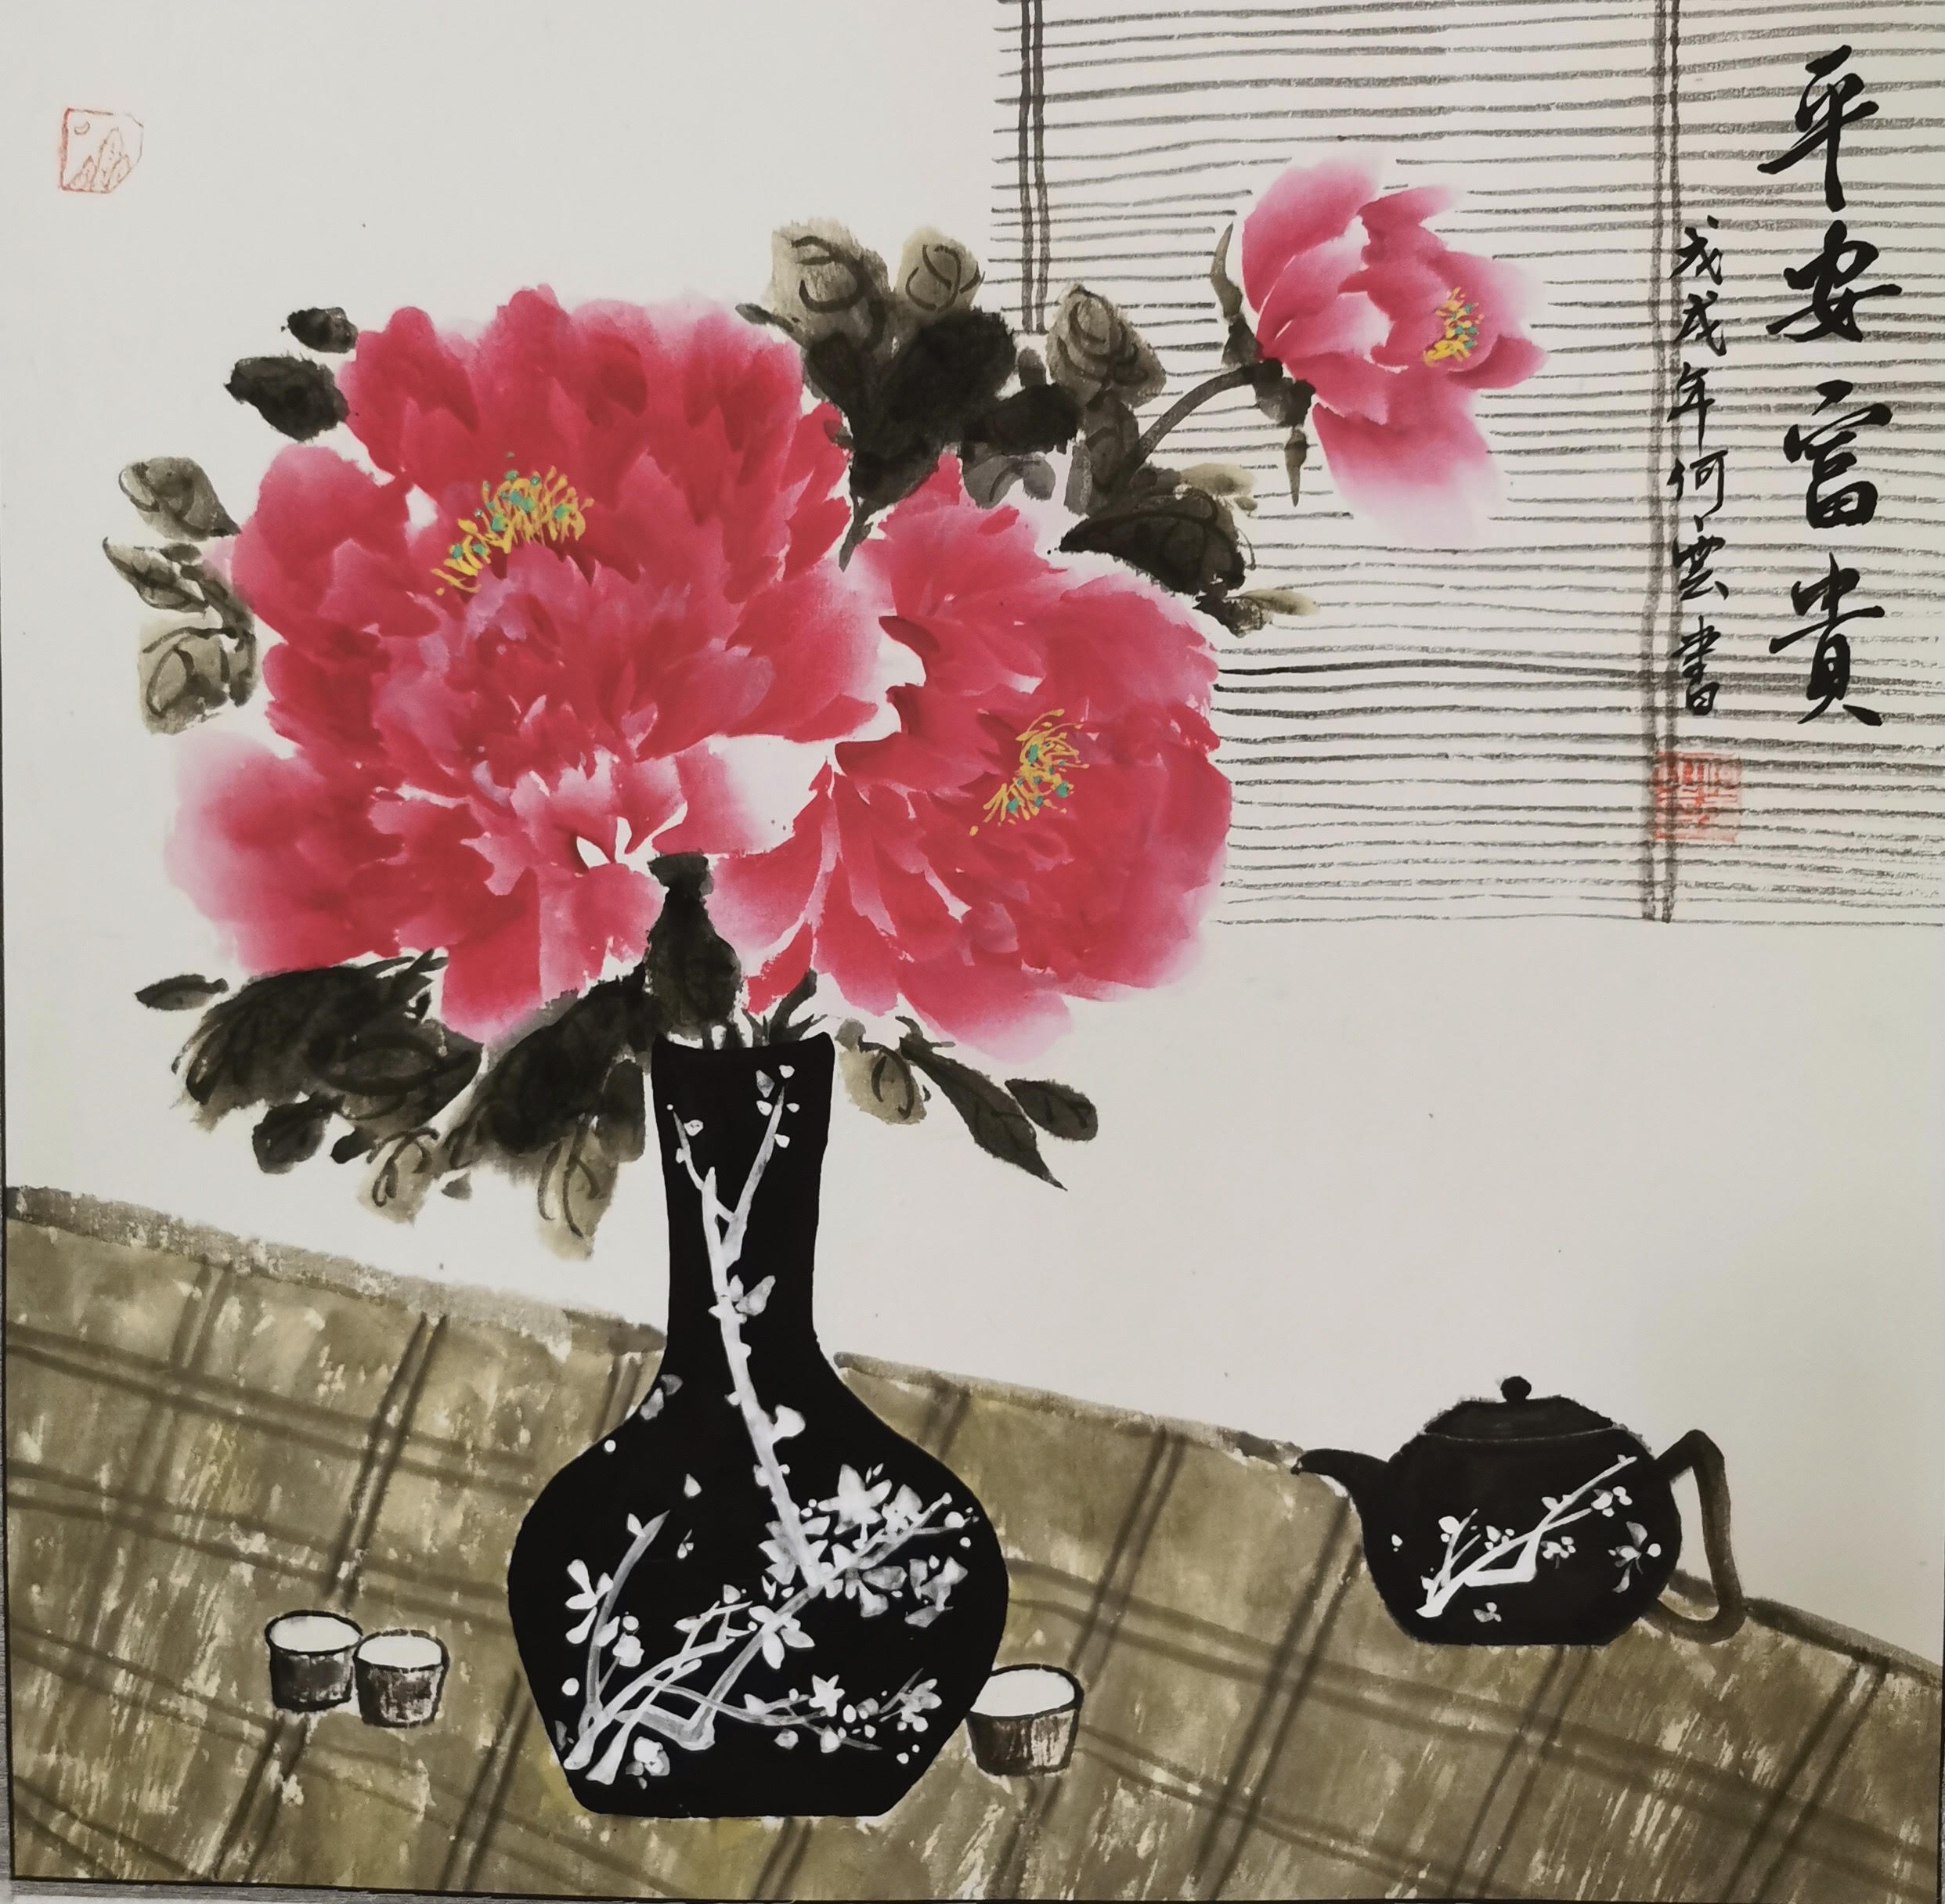 平安富贵
戊戌年何雲书